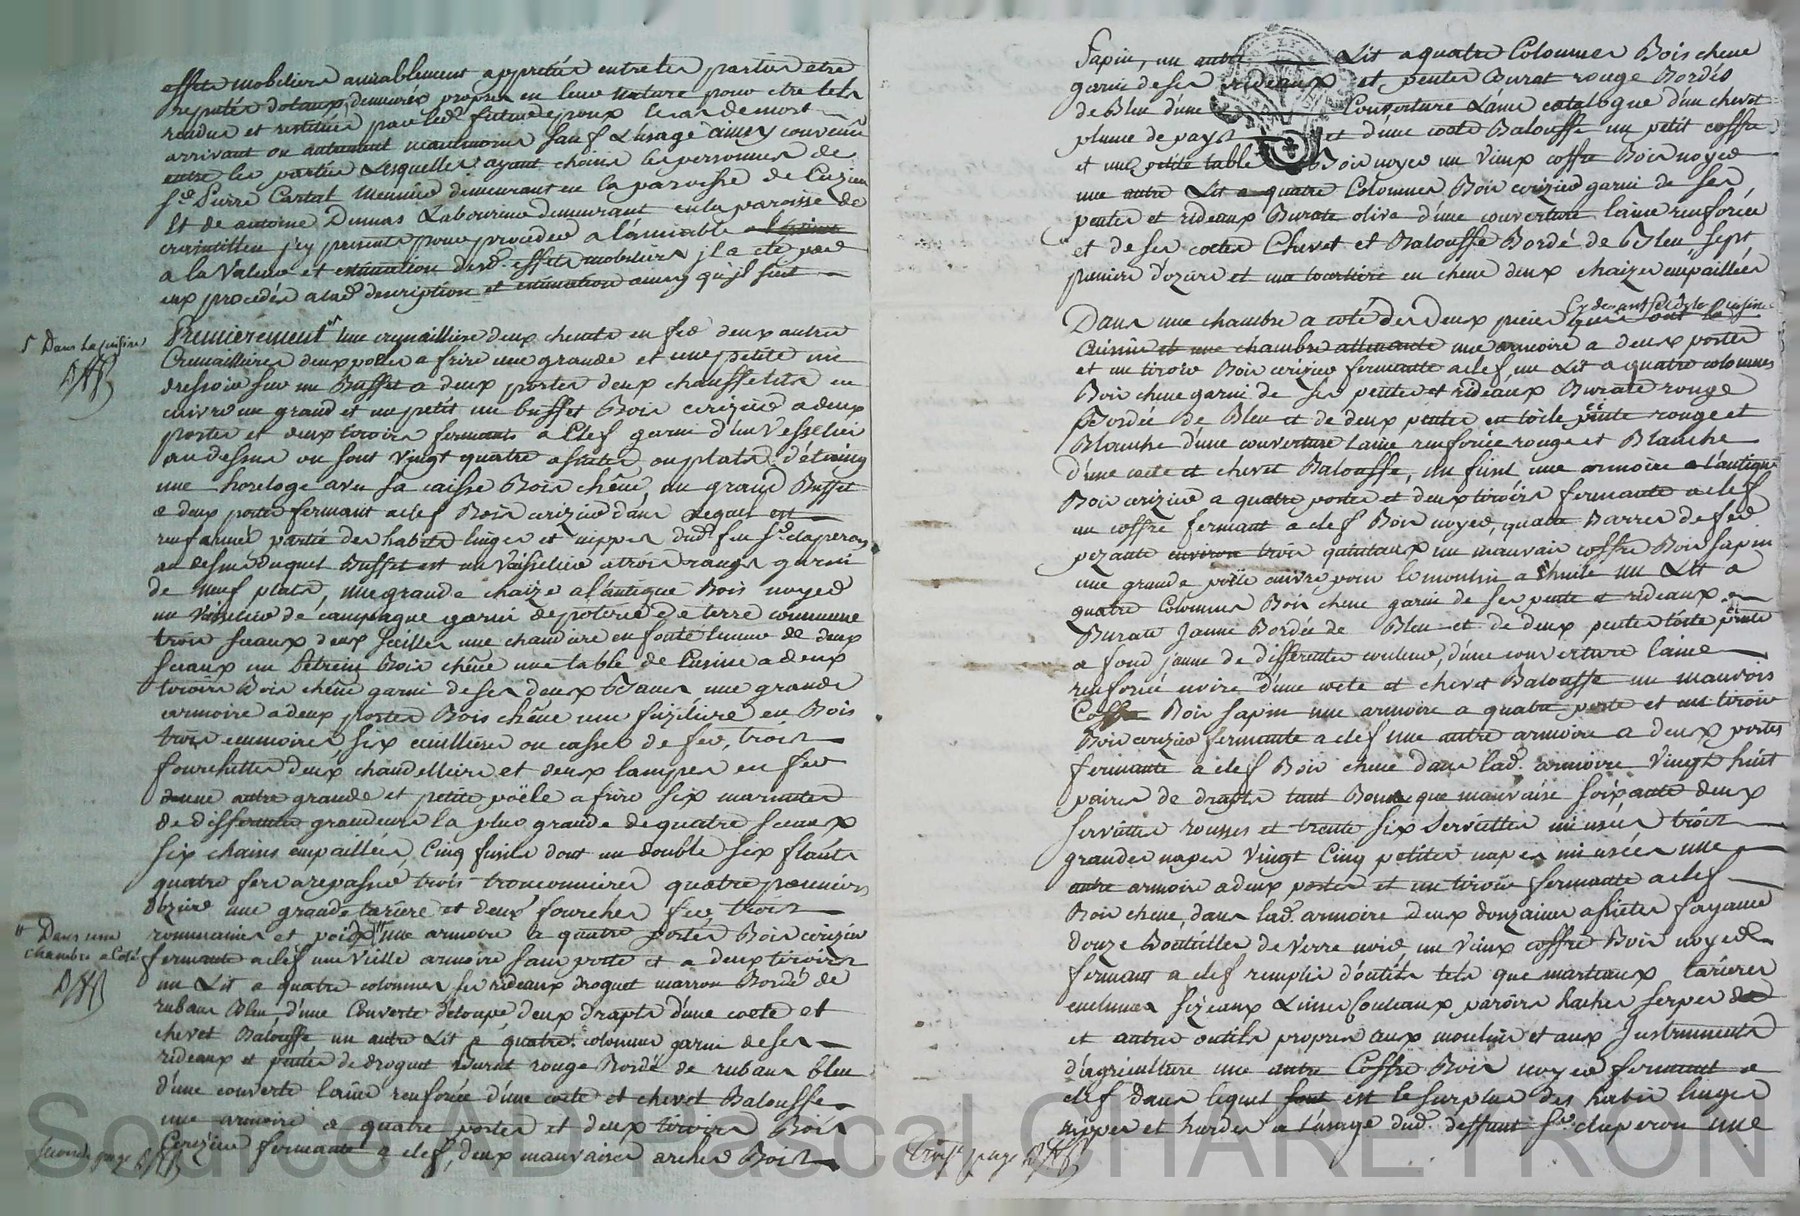 effets mobiliers amiablement appretiés entre les parties etre
reputés dotaux, demeurés propres en leur nature pour etre tels
rendus et restitués par led. futur epoux le cas de mort
arrivant ou autrement neanmoins sauf l'usage ainsy convenu
entre les parties Lesquelles ayant choisi les personnes de
sr. Pierre Cartal meunier demeurant en la paroisse de Cuzieu
Et de antoine Dumas Laboureur demeurant en la paroisse de
craintillieu j'cy presents pour proceder a lamiable
a la Valeur et estimation desd. effets mobiliers jl a eté par
eux procédés a lad. description et estimation ainsy qu'jl suit
5 Dans La cuisine
Premierement une crémaillière deux chenets en fer deux autres
Cremaillières deux poeles a frire une grande et une petite un
dressoir sur un Buffet a deux portes deux chauffelits en
cuivre un grand et un petit un buffet Bois cerizier a deux
portes et deux tiroirs fermants a Clef garni d'un Vesselier
au dessus ou sont Vingt quatre assiettes ou plats d'étaing
une horeloge avec sa caisse Bois chêne, un grand Buffet
a deux portes fermant a clef Bois cerizier dans Lequel est
renfermée partie des habits linges et nippes dud. feu sr. claperon
au desus duquel Buffet est un Vaisselier a trois rangs garni
de neuf plats, une grande chaize a l'antique Bois noyer
un Vaisselier de campagne garni de poterie de terre commune
trois sceaux deux seilles une chaudiere en fonte tenue de deux
sceaux un Petrein Bois chêne une table de Cuisine a deux
tiroirs Bois chêne garni de ses deux Bancs une grande
armoire a deux portes Bois chêne une fuziliere en Bois
trois ecumoires six cuillières ou casses de fer, trois
fourchettes deux chandelliers et deux lampes en fer
une autre grande et petite poële a frire six marmites
de differentes grandeurs la plus grande de quatre sceaux
six chaises empaillées, Cinq fusils dont un double six flauts
quatre fers a repasser trois tronconnieres quatre panniers
d'ozier une grande tariere et deux fourches fer, trois
11 Dans une
chambre a Coté
rommaines et poids une armoire a quatre portes Bois cerizier
fermante a clef une Vielle armoire sans porte et a deux tiroirs
un Lit a quatre colonnes ses rideaux droguet marron Bordé de
rubans Bleu, d'une Couverte détoupe, deux drapts d'une coete et
chevet Balouffe un autre Lit a quatre colonnes garni de ses
rideaux et pentes de droguet Burat rouge Bordé de rubans bleu
d'une couverte laine renforcée d'une coete et chevet Balouffe
une armoire a quatre portes et deux tiroirs Bois
Cerizier fermante a clef, deux mauvaises arches Bois
seconde page
Sapin, un autre Lit a quatre Colonnes Bois chene
garni de ses rideaux et pentes Burat rouge Bordés
de Bleu d'une Couverture Laine catalogue d'un chevet
plume de pays et d'une coete Balouffe un petit coffre
et une petite table Bois noyer un Vieux coffre Bois noyer
une autre Lit a quatre Colonnes Bois cerizier garni de ses
pentes et rideaux Burate olive d'une couverture laine renforcée
et de ses coetes Chevet et Balouffe Bordé de Bleu, sept
paniers d'ozier et une tourtiere en chene deux chaizes empaillées
Dans une chambre a coté des deux pieces
cuisine et une chambre attenante une armoire a deux portes
et un tiroir Bois cerizier fermante a clef, un Lit a quatre colonnes
Bois chene garni de ses pentes et rideaux Burate rouge
Bordée de Bleu et de deux pentes en toile peinte rouge et
Blanche d'une couverture Laine renforcée rouge et Blanche
d'une coete et chevet Balouffe, un fusil une armoire a l'antique
Bois cerizier a quatre portes et deux tiroirs fermante a clef
un coffre fermant a clef Bois noyer, quatre Barres de fer
pezante environ trois quintaux un mauvais coffre Bois sapin
une grande poële cuivre pour le moulin a l'huile un Lit a
quatre Colonnes Bois chene garni de ses pente et rideaux en
Burate Jaune Bordée de Bleu et de deux pentes toile peinte
a fond jaune de differente couleur, d'une couverture laine
renforcée noire d'une coete et chevet Balouffe un mauvois
Coffre Bois sapin une armoire a quatre porte et un tiroir
Bois cerizier fermante a clef une autre armoire a deux portes
fermante a clef Bois chene dans lad. armoire Vingt huit
paires de drapts tant Bons que mauvaise soixante deux
serviettes rousses et trente six serviettes mi usées trois
grandes napes Vingt Cinq petites napes mi usées une
autre armoire a deux portes et un tiroir fermante a clef
Bois chene, dans lad. armoire deux douzaines assietes fayance
douze Bouteilles de Verre noir un Vieux coffre Bois noyer
fermant a clef remplis d'outils tels que marteaux, tarieres
enclumes sizeaux Limes Couteaux parois haches serpes
et autres outils propres aux moulins et aux Instruments
d'agriculture une autre Coffre Bois noyer fermant a
clef dans lequel est le surplus des habis linges
nippes et hardes a l'usage dud. deffunt sr. claperon une
trois.e page
Source AD Pascal CHARETRON